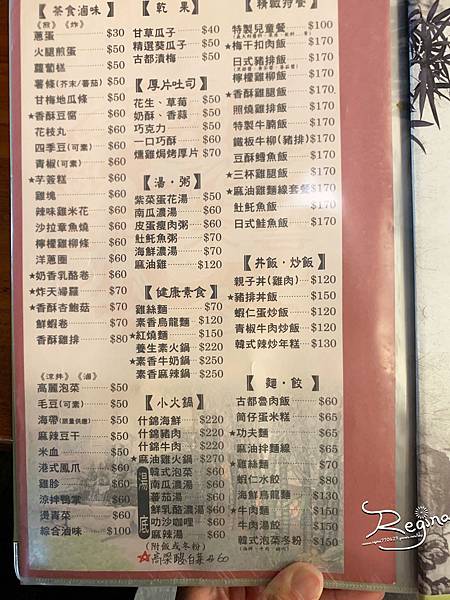 【茶食滷味】
《煎》《炸》
蔥蛋 $30
火腿煎蛋 $50
蘿蔔糕 $50
薯條(芥末/蕃茄) $50
甘梅地瓜條 $50
★香酥豆腐 $60
花枝丸 $60
四季豆(可素) $60
青椒(可素) $60
★芋簽糕 $60
雞塊 $60
辣味雞米花 $60
沙拉章魚燒 $60
檸檬雞柳條 $60
洋蔥圈 $60
★奶香乳酪卷 $60
★炸天婦羅 $70
★香酥杏鮑菇 $70
鮮蝦卷 $70
香酥雞排 $80
《涼拌》《滷》
高麗泡菜 $50
毛豆(可素) $50
海帶(限量供應) $50
麻辣豆干 $50
米血 $50
港式鳳爪 $60
雞胗 $60
涼拌鴨掌 $60
燙青菜 $50
綜合滷味 $100
【乾果】
甘草瓜子 $40
精選葵瓜子 $50
古都漬梅 $50
【厚片吐司】
花生、草莓 $50
奶酥、香蒜 $50
巧克力 $50
一口巧酥 $60
燻雞焗烤厚片 $70
【湯‧粥】
紫菜蛋花湯 $50
南瓜濃湯 $60
皮蛋瘦肉粥 $60
魠魚粥 $70
海鮮濃湯 $70
麻油雞 $120
【健康素食】
雞絲麵 $70
素香烏龍麵 $120
★紅燒麵 $150
養生素火鍋 $220
★素香牛奶鍋 $250
素香麻辣鍋 $250
【小火鍋】
什錦海鮮 $220
什錦豬肉 $220
什錦牛肉 $220
★麻油雞火鍋 $270
韓式泡菜 $250
南瓜濃湯 $250
蕃茄湯 $250
鮮乳酪濃湯 $250
叻沙咖哩 $250
麻辣湯 $250
(附飯或冬粉)
☆高梁酸白菜
【精緻特餐】
特製兒童餐 $100
★梅干扣肉飯 $170
日式豬排飯 $170
檸檬雞柳飯 $170
★香酥雞腿飯 $170
照燒雞腿飯 $170
特製牛腩飯 $170
鐵板牛柳(豬排) $170
豆酥鱈魚飯 $170
★三杯雞腿飯 $170
★麻油雞麵線套餐 $170
魠魚飯 $170
日式鮭魚飯 $170
【丼飯‧炒飯】
親子丼(雞肉) $120
★豬排丼飯 $150
蝦仁蛋炒飯 $120
青椒牛肉炒飯 $120
韓式辣炒年糕 $130
【麵‧餃】
古都魯肉飯 $60
筒仔蛋米糕 $65
★功夫麵 $65
麻油拌麵線 $65
★雞絲麵 $70
蝦仁水餃 $70
海鮮烏龍麵 $130
★牛肉麵 $150
牛肉湯餃 $150
韓式泡菜冬粉 $150
Regina